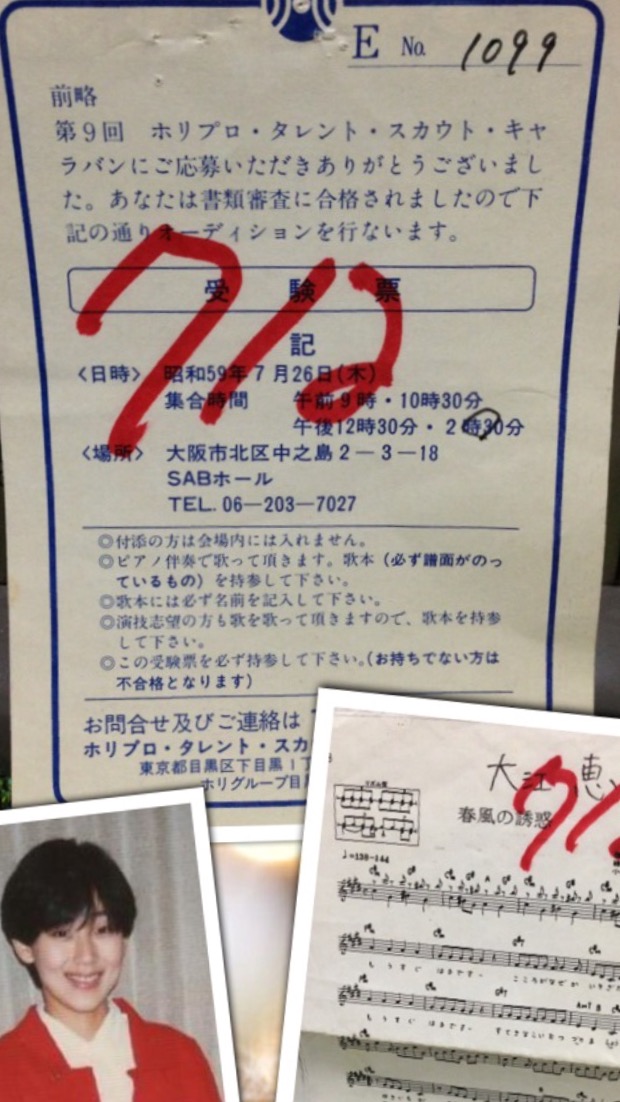 E No. 1099
前略
第9回 ホリプロ・タレント・スカウト・キャ
ラバンにご応募いただきありがとうございまし
た。あなたは書類審査に合格されましたので下
記の通りオーディションを行ないます。
受験票
712
記
〈日時〉 昭和59年7月26日(木)
集合時間 午前9時・10時30分
午後12時30分・2時30分
〈場所〉 大阪市北区中之島2―3―18
SABホール
TEL. 06―203―7027
◎付添の方は会場内には入れません。
◎ピアノ伴奏で歌って頂きます。歌本(必ず譜面がのっ
ているもの)を持参して下さい。
◎歌本には必ず名前を記入して下さい。
◎演技志望の方も歌を歌って頂きますので、歌本を持参
して下さい。
◎この受験票を必ず持参して下さい。(お持ちでない方は
不合格となります)
お問合せ及びご連絡は
ホリプロ・タレント・スカ
東京都目黒区下目黒1丁
ホリグループ目黒
大江 恵
春風の誘惑
712
♩=138-144
もうすぐ はるですー
もうすぐ はるですー